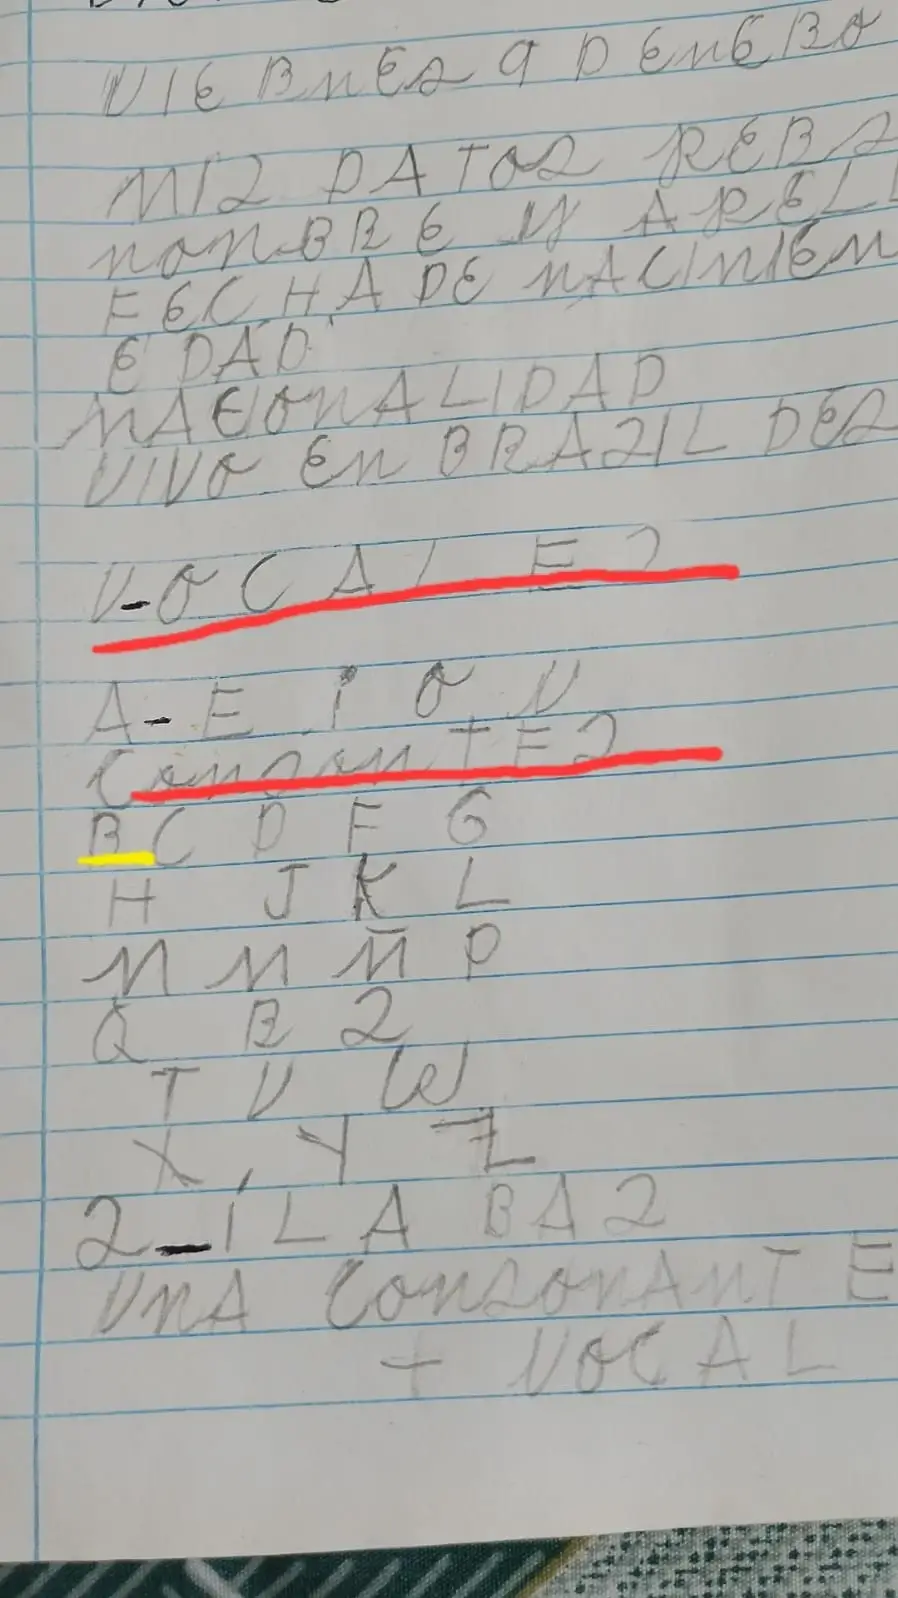 VIERNES 9 D ENERO
MIS DATOS PERS
NONBRE Y APELL
FECHA DE NACINIEN
EDAD
NACIONALIDAD
VIVO EN BRAZIL DES
V-OCALES
A-E I O U
CONSONTES
B C D F G
H J K L
M N Ñ P
Q R S
T V W
X, Y Z
S-ILABAS
UNA CONSONANTE
+ VOCAL